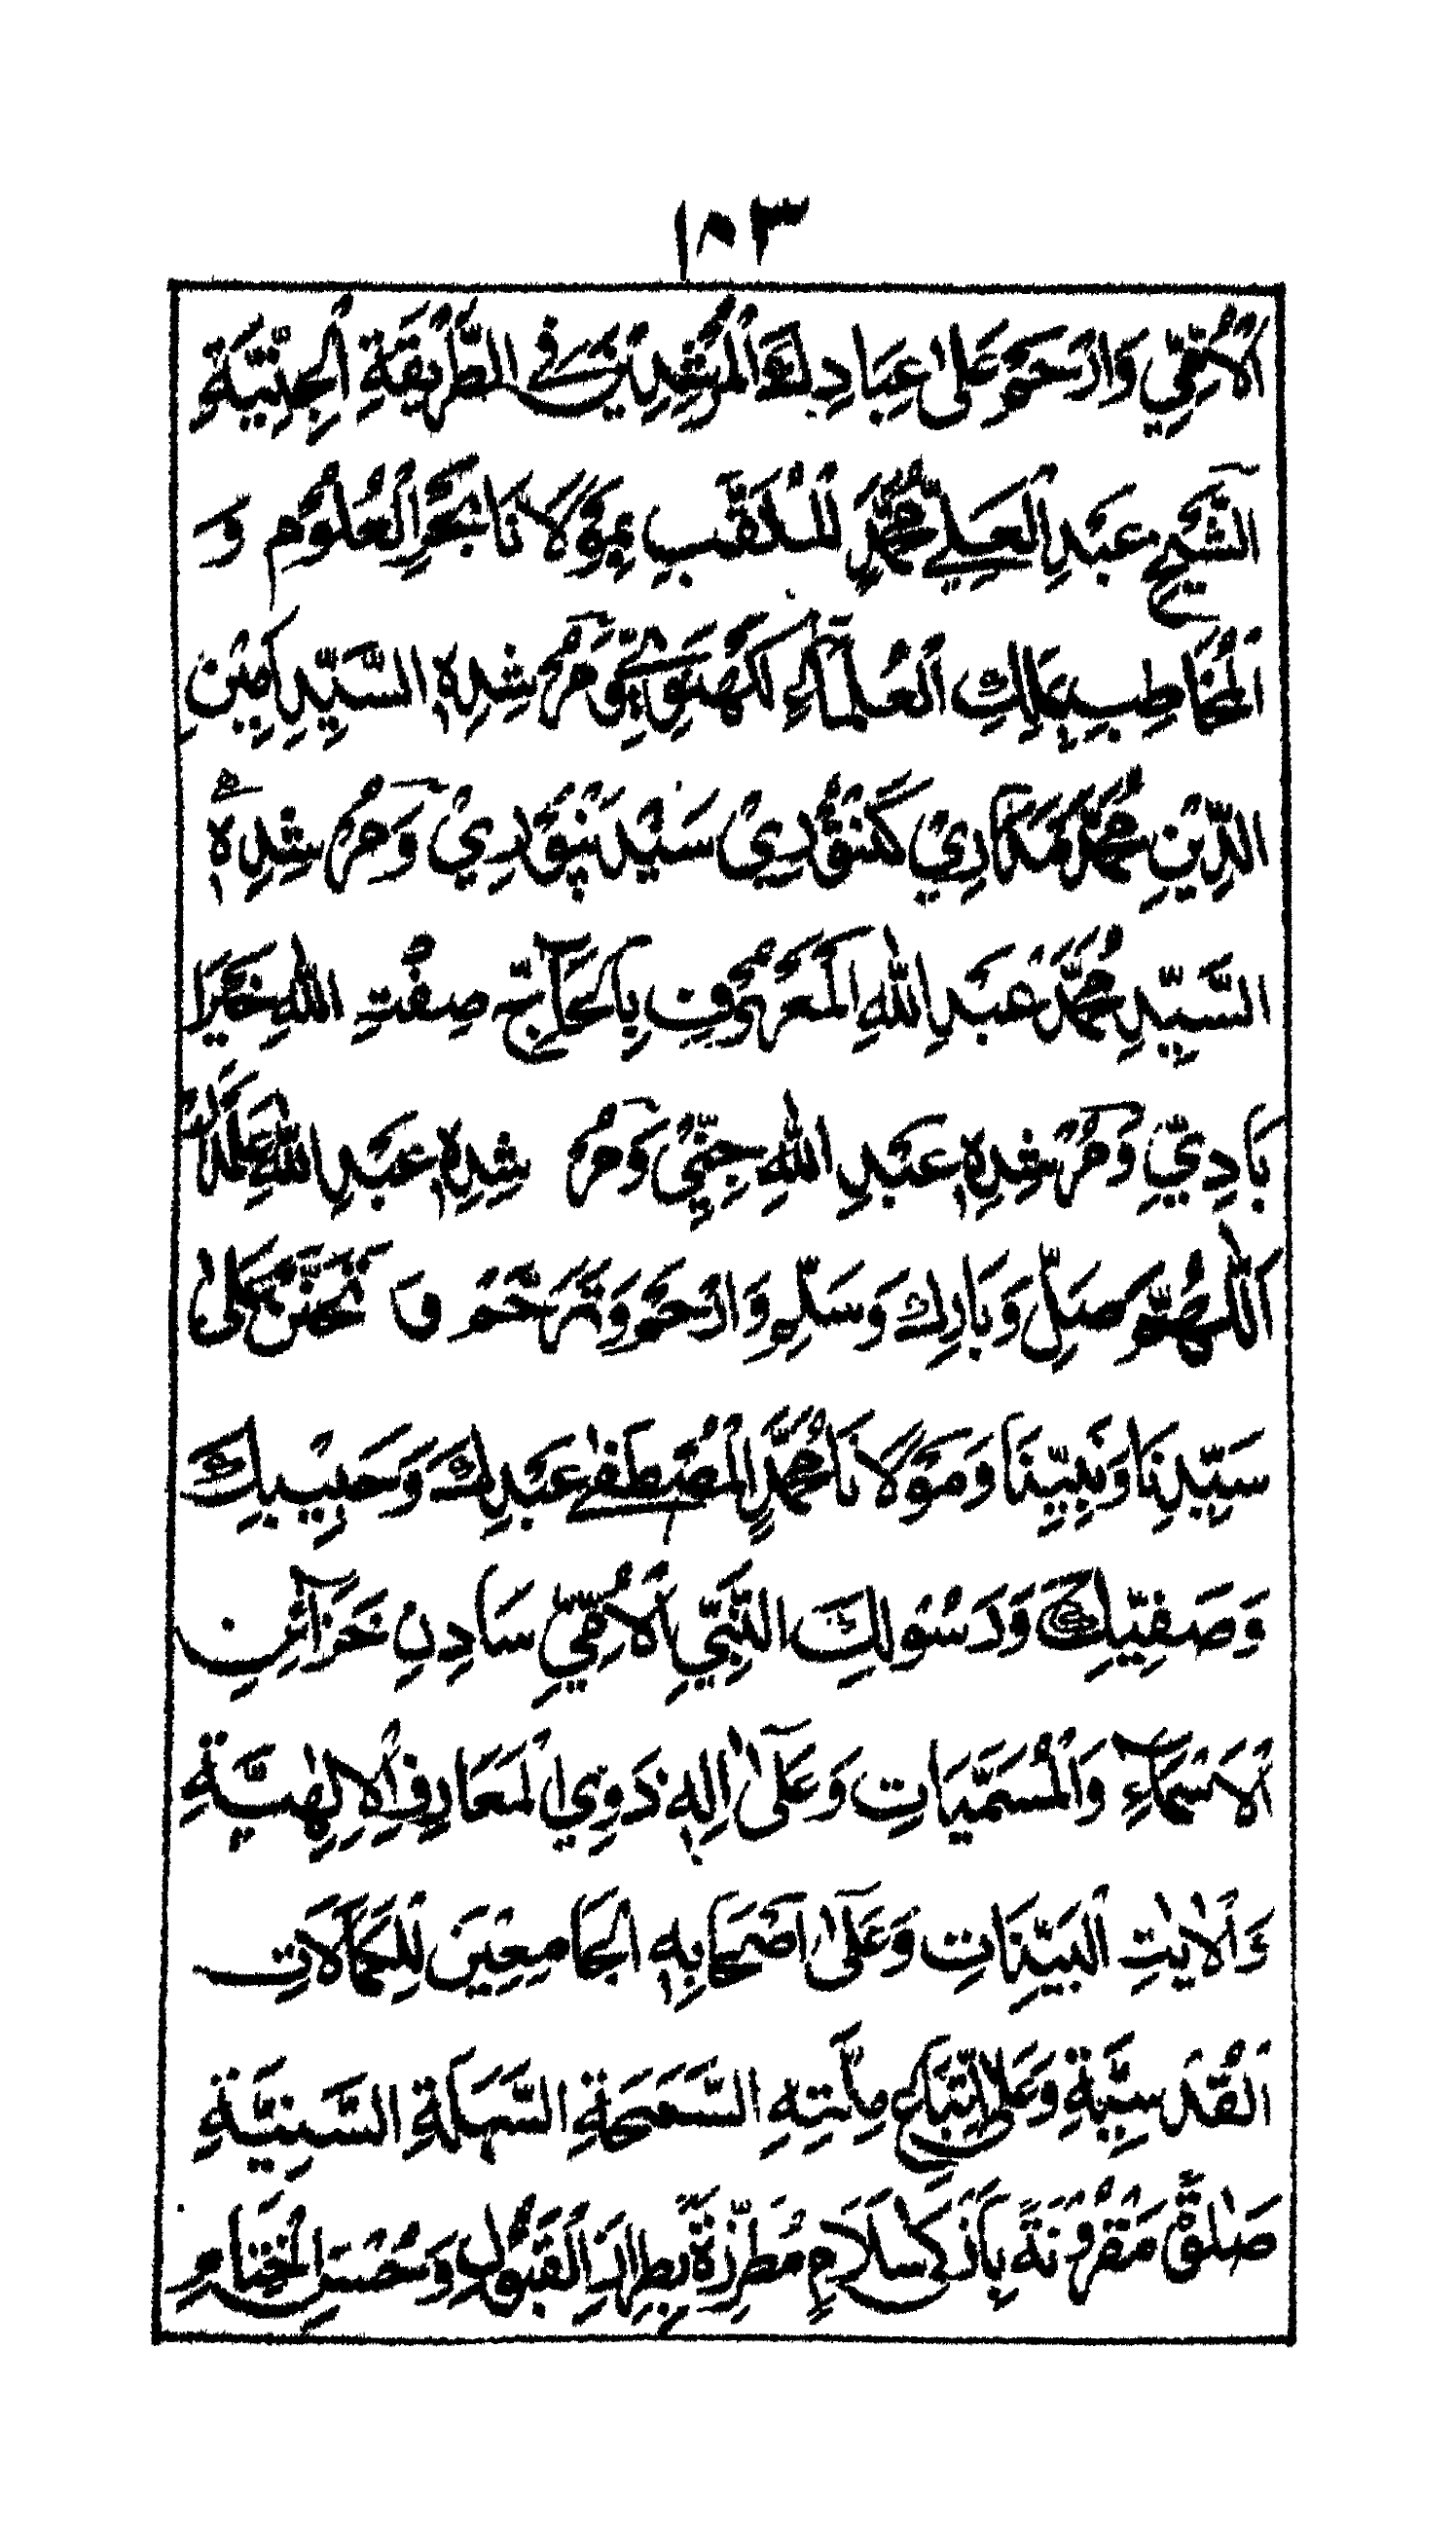 ١٠٣
الْاُمِّيِّ وَارْحَمْ عَلٰى عِبَادِكَ الْمُرْشِدِيْنَ فِي الطَّرِيْقَةِ الْجِنِّيَّةِ
الشَّيْخِ عَبْدِ الْعَلِيِّ مُحَمَّدٍ الْمُلَقَّبِ بِمَوْلَانَا بَحْرِ الْعُلُوْمِ وَ
الْمُخَاطَبِ بِمَلِكِ الْعُلَمَآءِ لَكْهَنَوِيٍّ وَمُرْشِدِهٖ السَّيِّدِ اَمِيْنِ
الدِّيْنِ مُحَمَّدْ مَدَارِيْ سَيِّدْپُوْرِيْ وَمُرْشِدِهٖ
السَّيِّدِ مُحَمَّدْ عَبْدِ اللّٰهِ الْمَعْرُوْفِ بِالْحَآجِّ صِفْتِ اللّٰهِ خَيْرَا
بَادِيِّ وَمُرْشِدِهٖ عَبْدِ اللّٰهِ جِنِّيْ وَمُرْشِدِهٖ عَبْدِ اللّٰهِ
اَللّٰهُمَّ صَلِّ وَبَارِكْ وَسَلِّمْ وَارْحَمْ وَتَرَحَّمْ وَ تَحَنَّنْ عَلٰى
سَيِّدِنَا وَنَبِيِّنَا وَمَوْلَانَا مُحَمَّدٍ الْمُصْطَفٰى عَبْدِكَ وَحَبِيْبِكَ
وَصَفِيِّكَ وَرَسُوْلِكَ النَّبِيِّ الْاُمِّيِّ سَادِنِ خَزَآئِنِ
الْاَسْمَآءِ وَالْمُسَمَّيَاتِ وَعَلٰٓى اٰلِهٖ ذَوِي الْمَعَارِفِ الْاِلٰهِيَّةِ
وَالْاٰيٰتِ الْبَيِّنَاتِ وَعَلٰٓى اَصْحَابِهٖ الْجَامِعِيْنَ لِلْكَمَالَاتِ
الْقُدْسِيَّةِ وَعَلٰى اَتْبَاعِ مِلَّتِهِ السَّمْحَةِ السَّهْلَةِ السَّنِيَّةِ
صَلٰوةً مَقْرُوْنَةً بِاَزْكٰى سَلَامٍ مُطَرَّزَةً بِطِرَازِ الْقَبُوْلِ وَحُسْنِ الْخِتَامِ